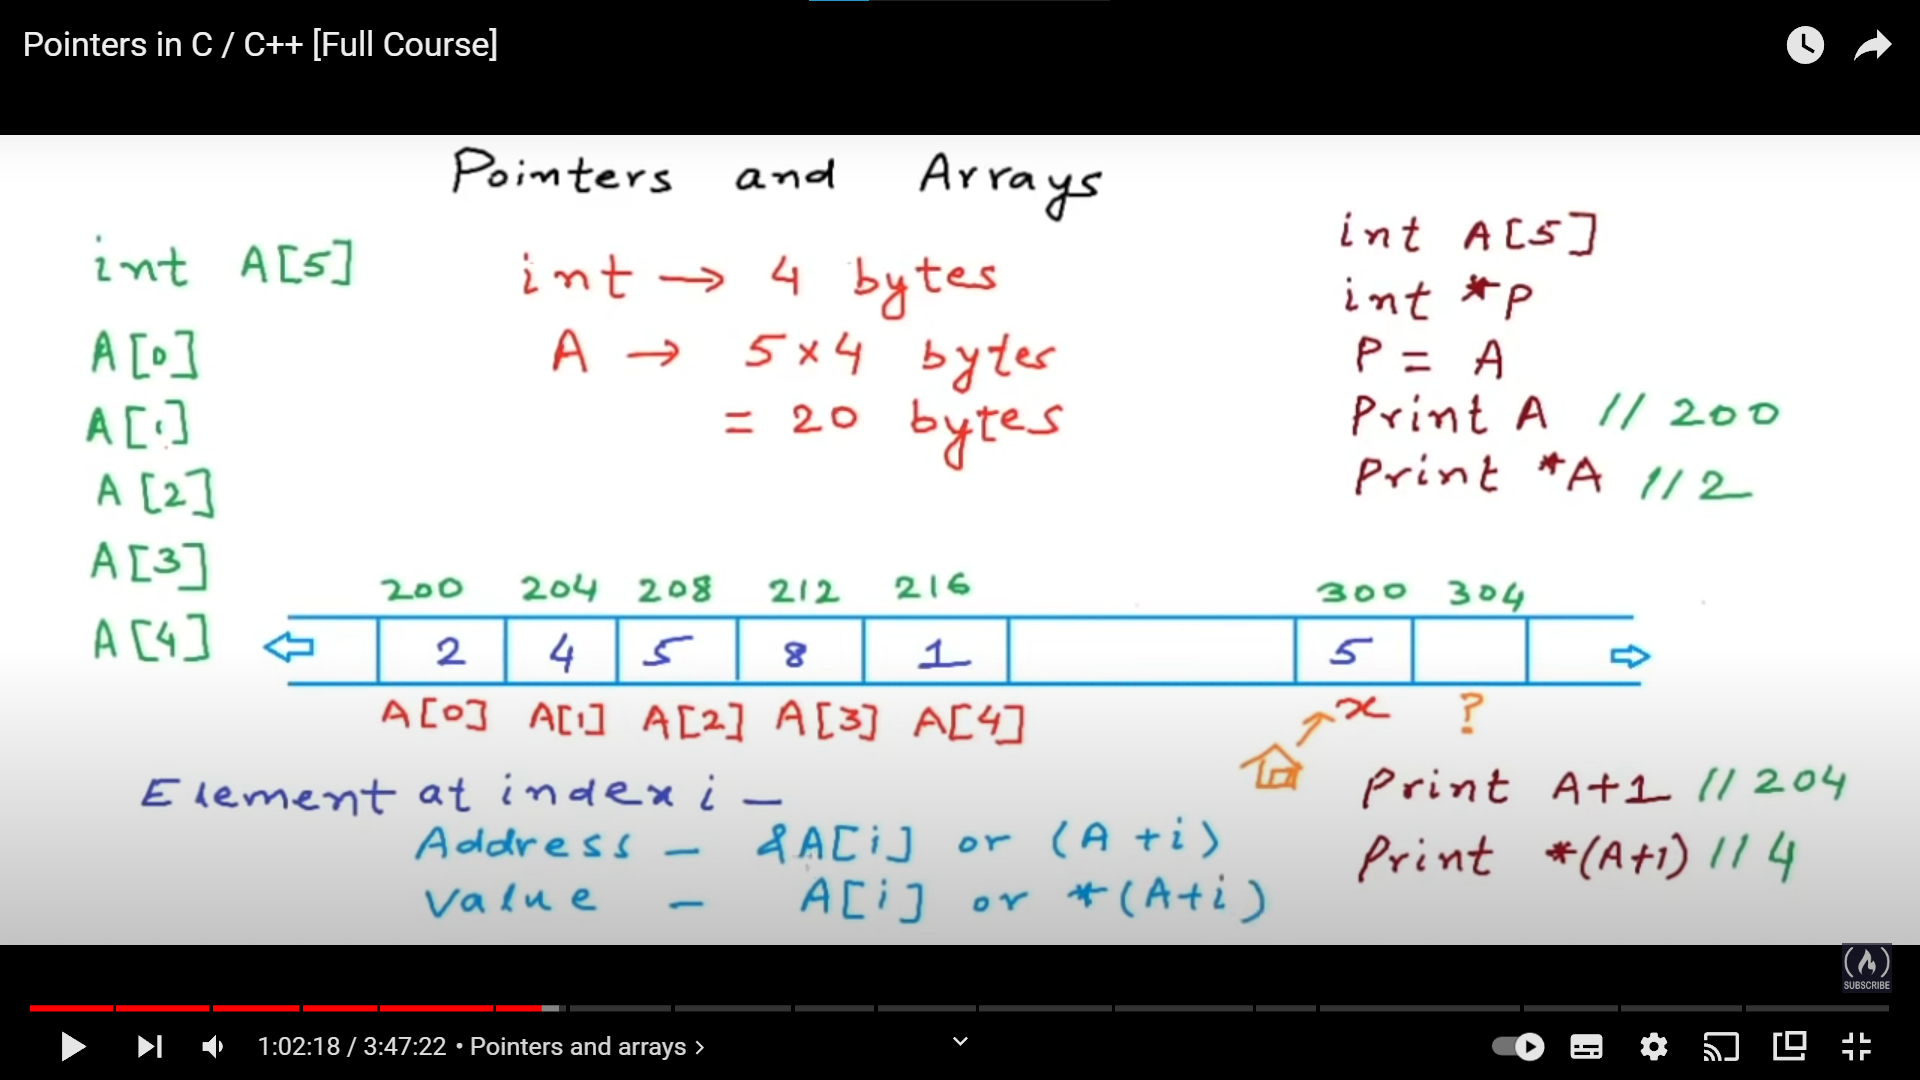 Pointers in C / C++ [Full Course]
Pointers and Arrays
int A[5]
A[0]
A[1]
A[2]
A[3]
A[4]
int → 4 bytes
A → 5 × 4 bytes
= 20 bytes
int A[5]
int *P
P = A
Print A // 200
Print *A // 2
200 204 208 212 216 300 304
2 4 5 8 1 5
A[0] A[1] A[2] A[3] A[4] x ?
Element at index i –
Address – &A[i] or (A + i)
Value – A[i] or *(A+i)
Print A+1 // 204
Print *(A+1) // 4
SUBSCRIBE
1:02:18 / 3:47:22 • Pointers and arrays ›